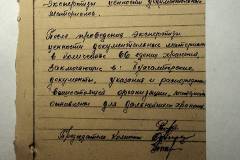 экспертизы ценности документальных
материалов.
После проведения экспертизы
ценности документальных материалов
в количестве 66 единиц хранения,
заключающие в: бухгалтерские
документы, указания и распоряжения
вышестоящей организации,
оставлены для дальнейшего хранения.
Председатель комиссии